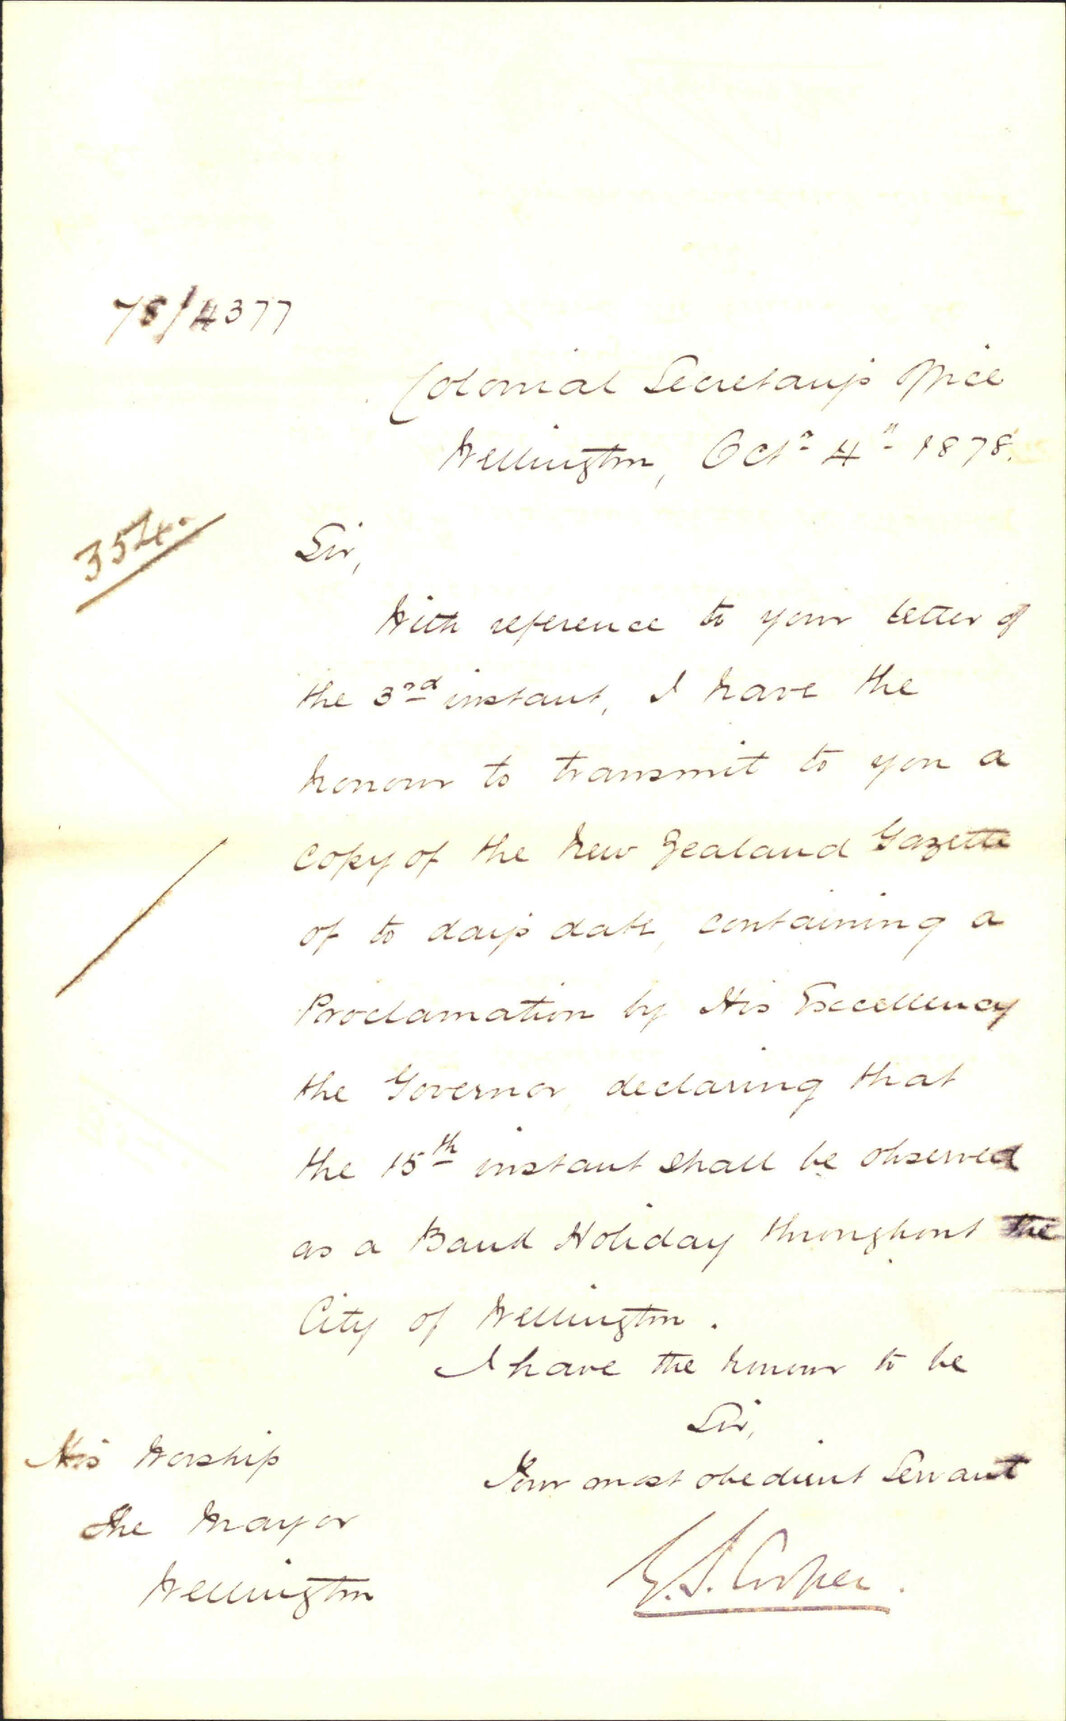 78/4377
Colonial Secretary's Office
Wellington, Octr 4th 1878.
354.
Sir,
With reference to your letter of
the 3rd instant, I have the
honour to transmit to you a
copy of the New Zealand Gazette
of to day's date, containing a
Proclamation by His Excellency
the Governor declaring that
the 15th instant shall be observed
as a Bank Holiday throughout the
City of Wellington.
I have the honour to be
Sir,
Your most obedient Servant
G. S. Cooper.
His Worship
The Mayor
Wellington